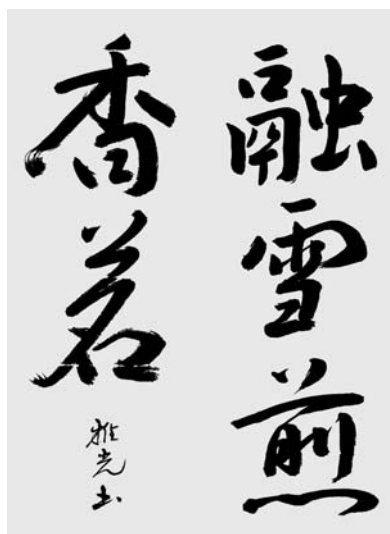 融雪煎
香茗
雅光书